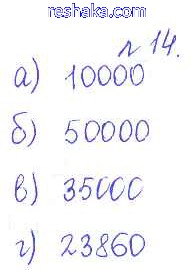 reshaka.com
№ 14.
а) 10000
б) 50000
в) 35000
г) 23860